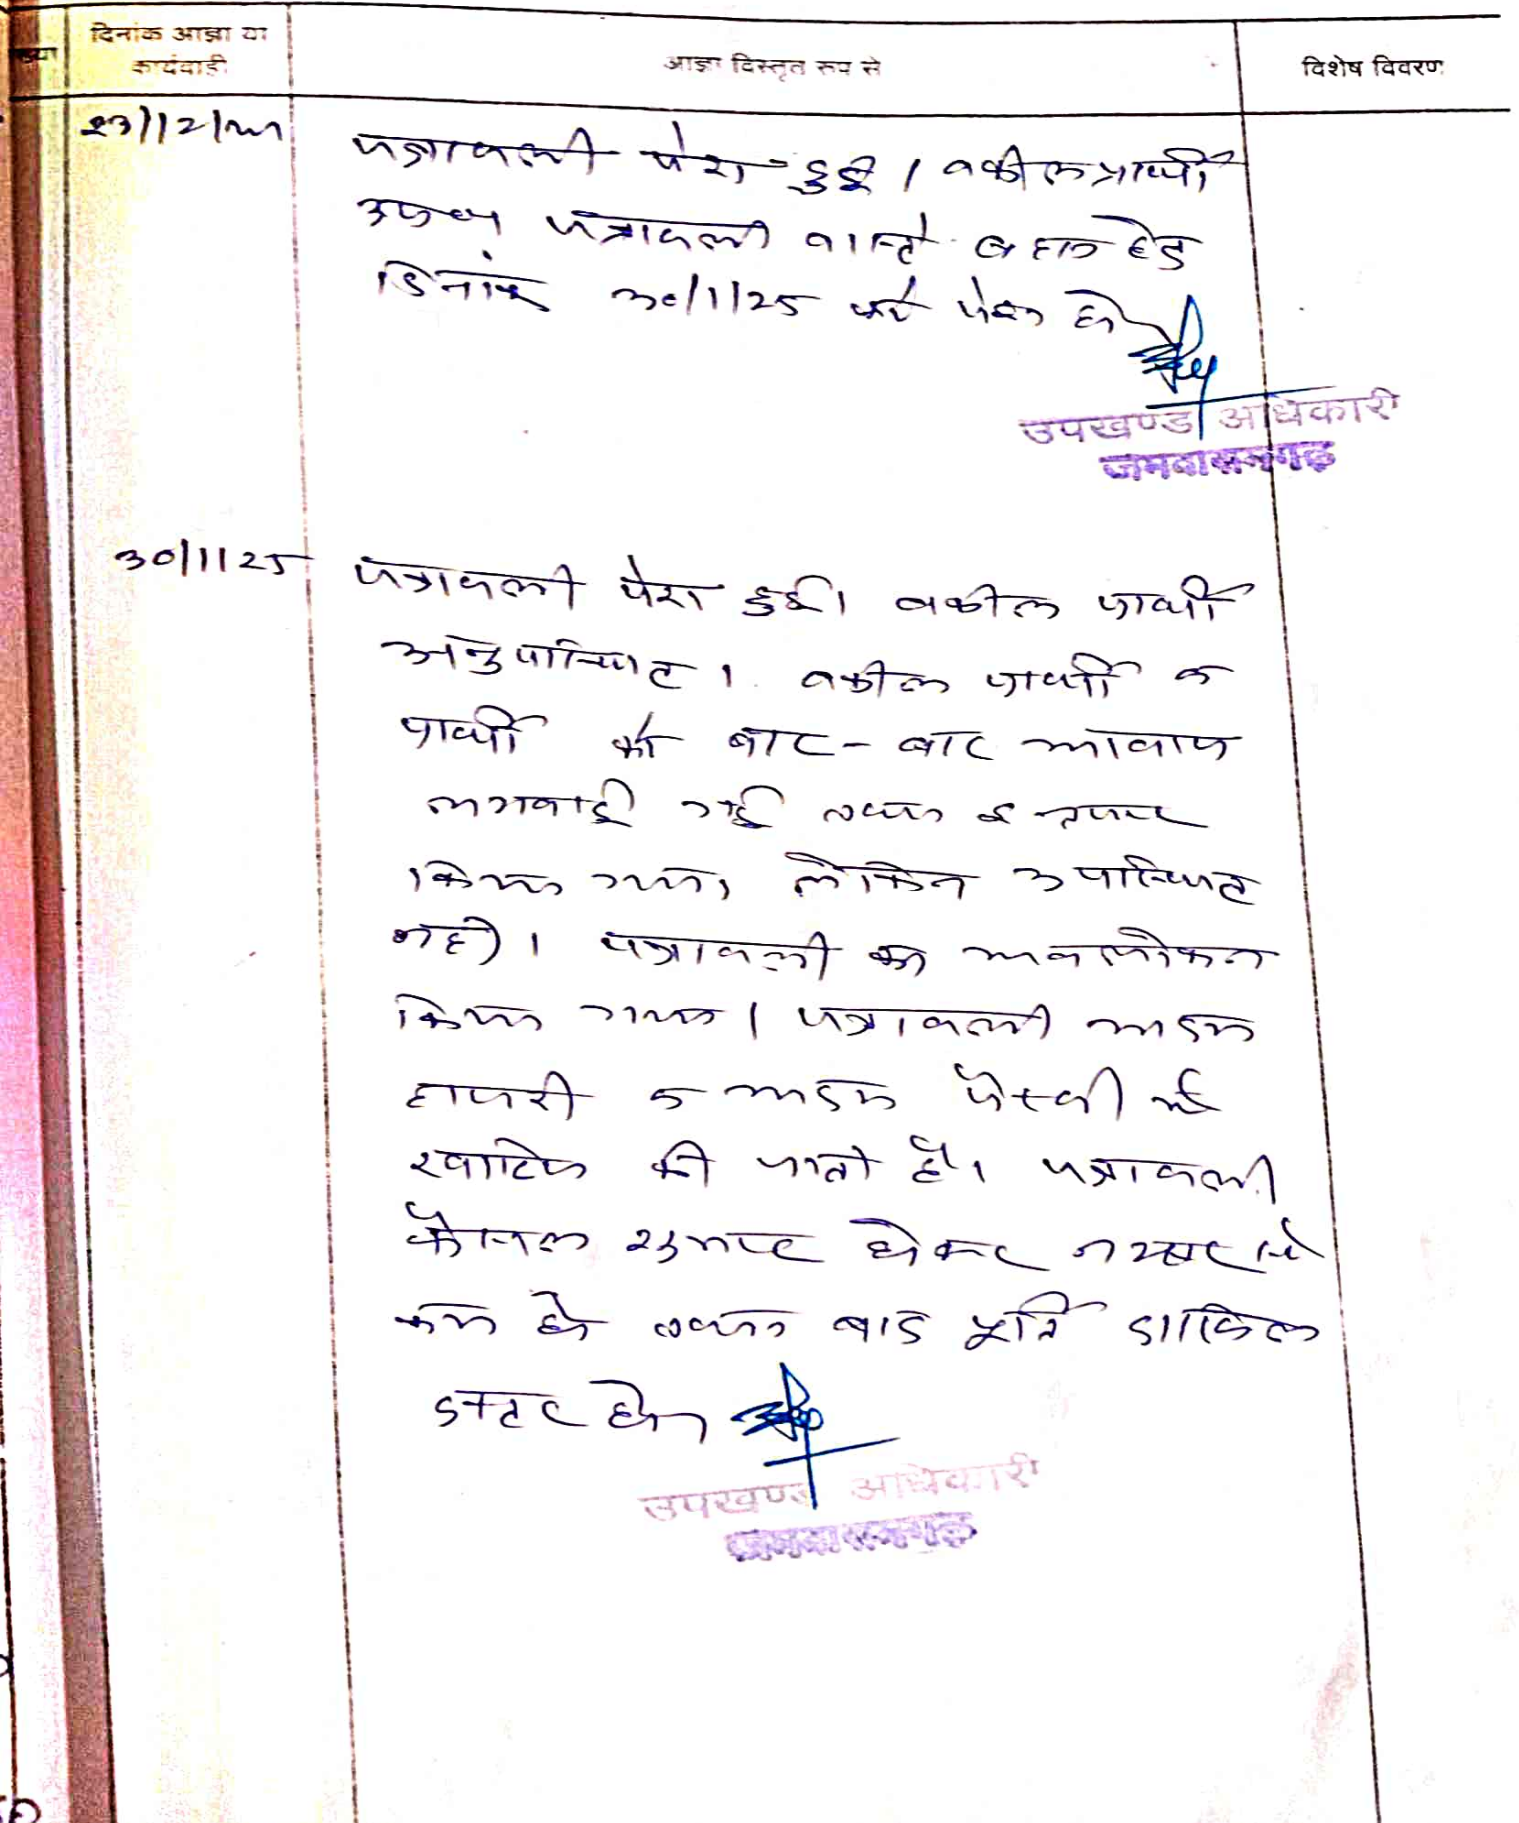 दिनांक आज्ञा या
कार्यवाही
आज्ञा विस्तृत रूप से
विशेष विवरण
पत्रावली पेश हुई। वकील प्रार्थी
उप० पत्रावली वास्ते बहस हेतु
दिनांक 30/1/25 को पेश हो
उपखण्ड अधिकारी
जमवारामगढ़
30/1/25
पत्रावली पेश हुई। वकील प्रार्थी
अनुपस्थित। वकील प्रार्थी व
प्रार्थी को बार-बार आवाज
लगवाई गई तथा इन्तजार
किया गया, लेकिन उपस्थित
नही। पत्रावली का अवलोकन
किया गया। पत्रावली अदम
हाजरी व अदम पैरवी में
खारिज की जाती है। पत्रावली
फैसल शुमार होकर नम्बर से
कम हो तथा बाद पूर्ति दाखिल
दफ्तर हो।
उपखण्ड अधिकारी
जमवारामगढ़